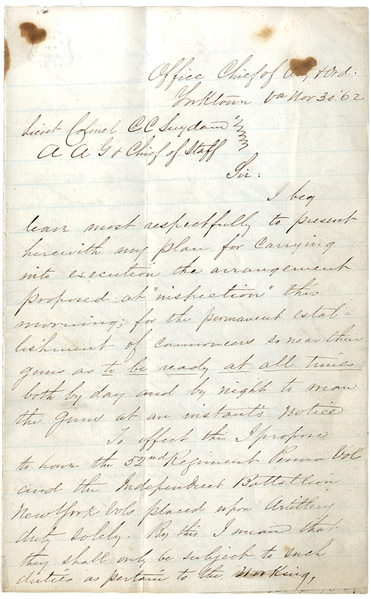 Office Chief of Art, & Ord.
Yorktown Va Nov 30 '62
Lieut Colonel C C Suydam
A A G & Chief of Staff
Sir:
I beg
leave most respectfully to present
herewith my plan for carrying
into execution the arrangement
proposed at "inspection" this
morning; for the permanent estab-
lishment of cannoneers so near their
guns as to be ready at all times
both by day and by night to man
the guns at an instants notice
To effect this I propose
to have the 52nd Regiment Penna Vols
and the Independent Battallion
New York Vols placed upon Artillery
duty solely. By this I mean that
they shall only be subject to such
duties as pertain to the working,